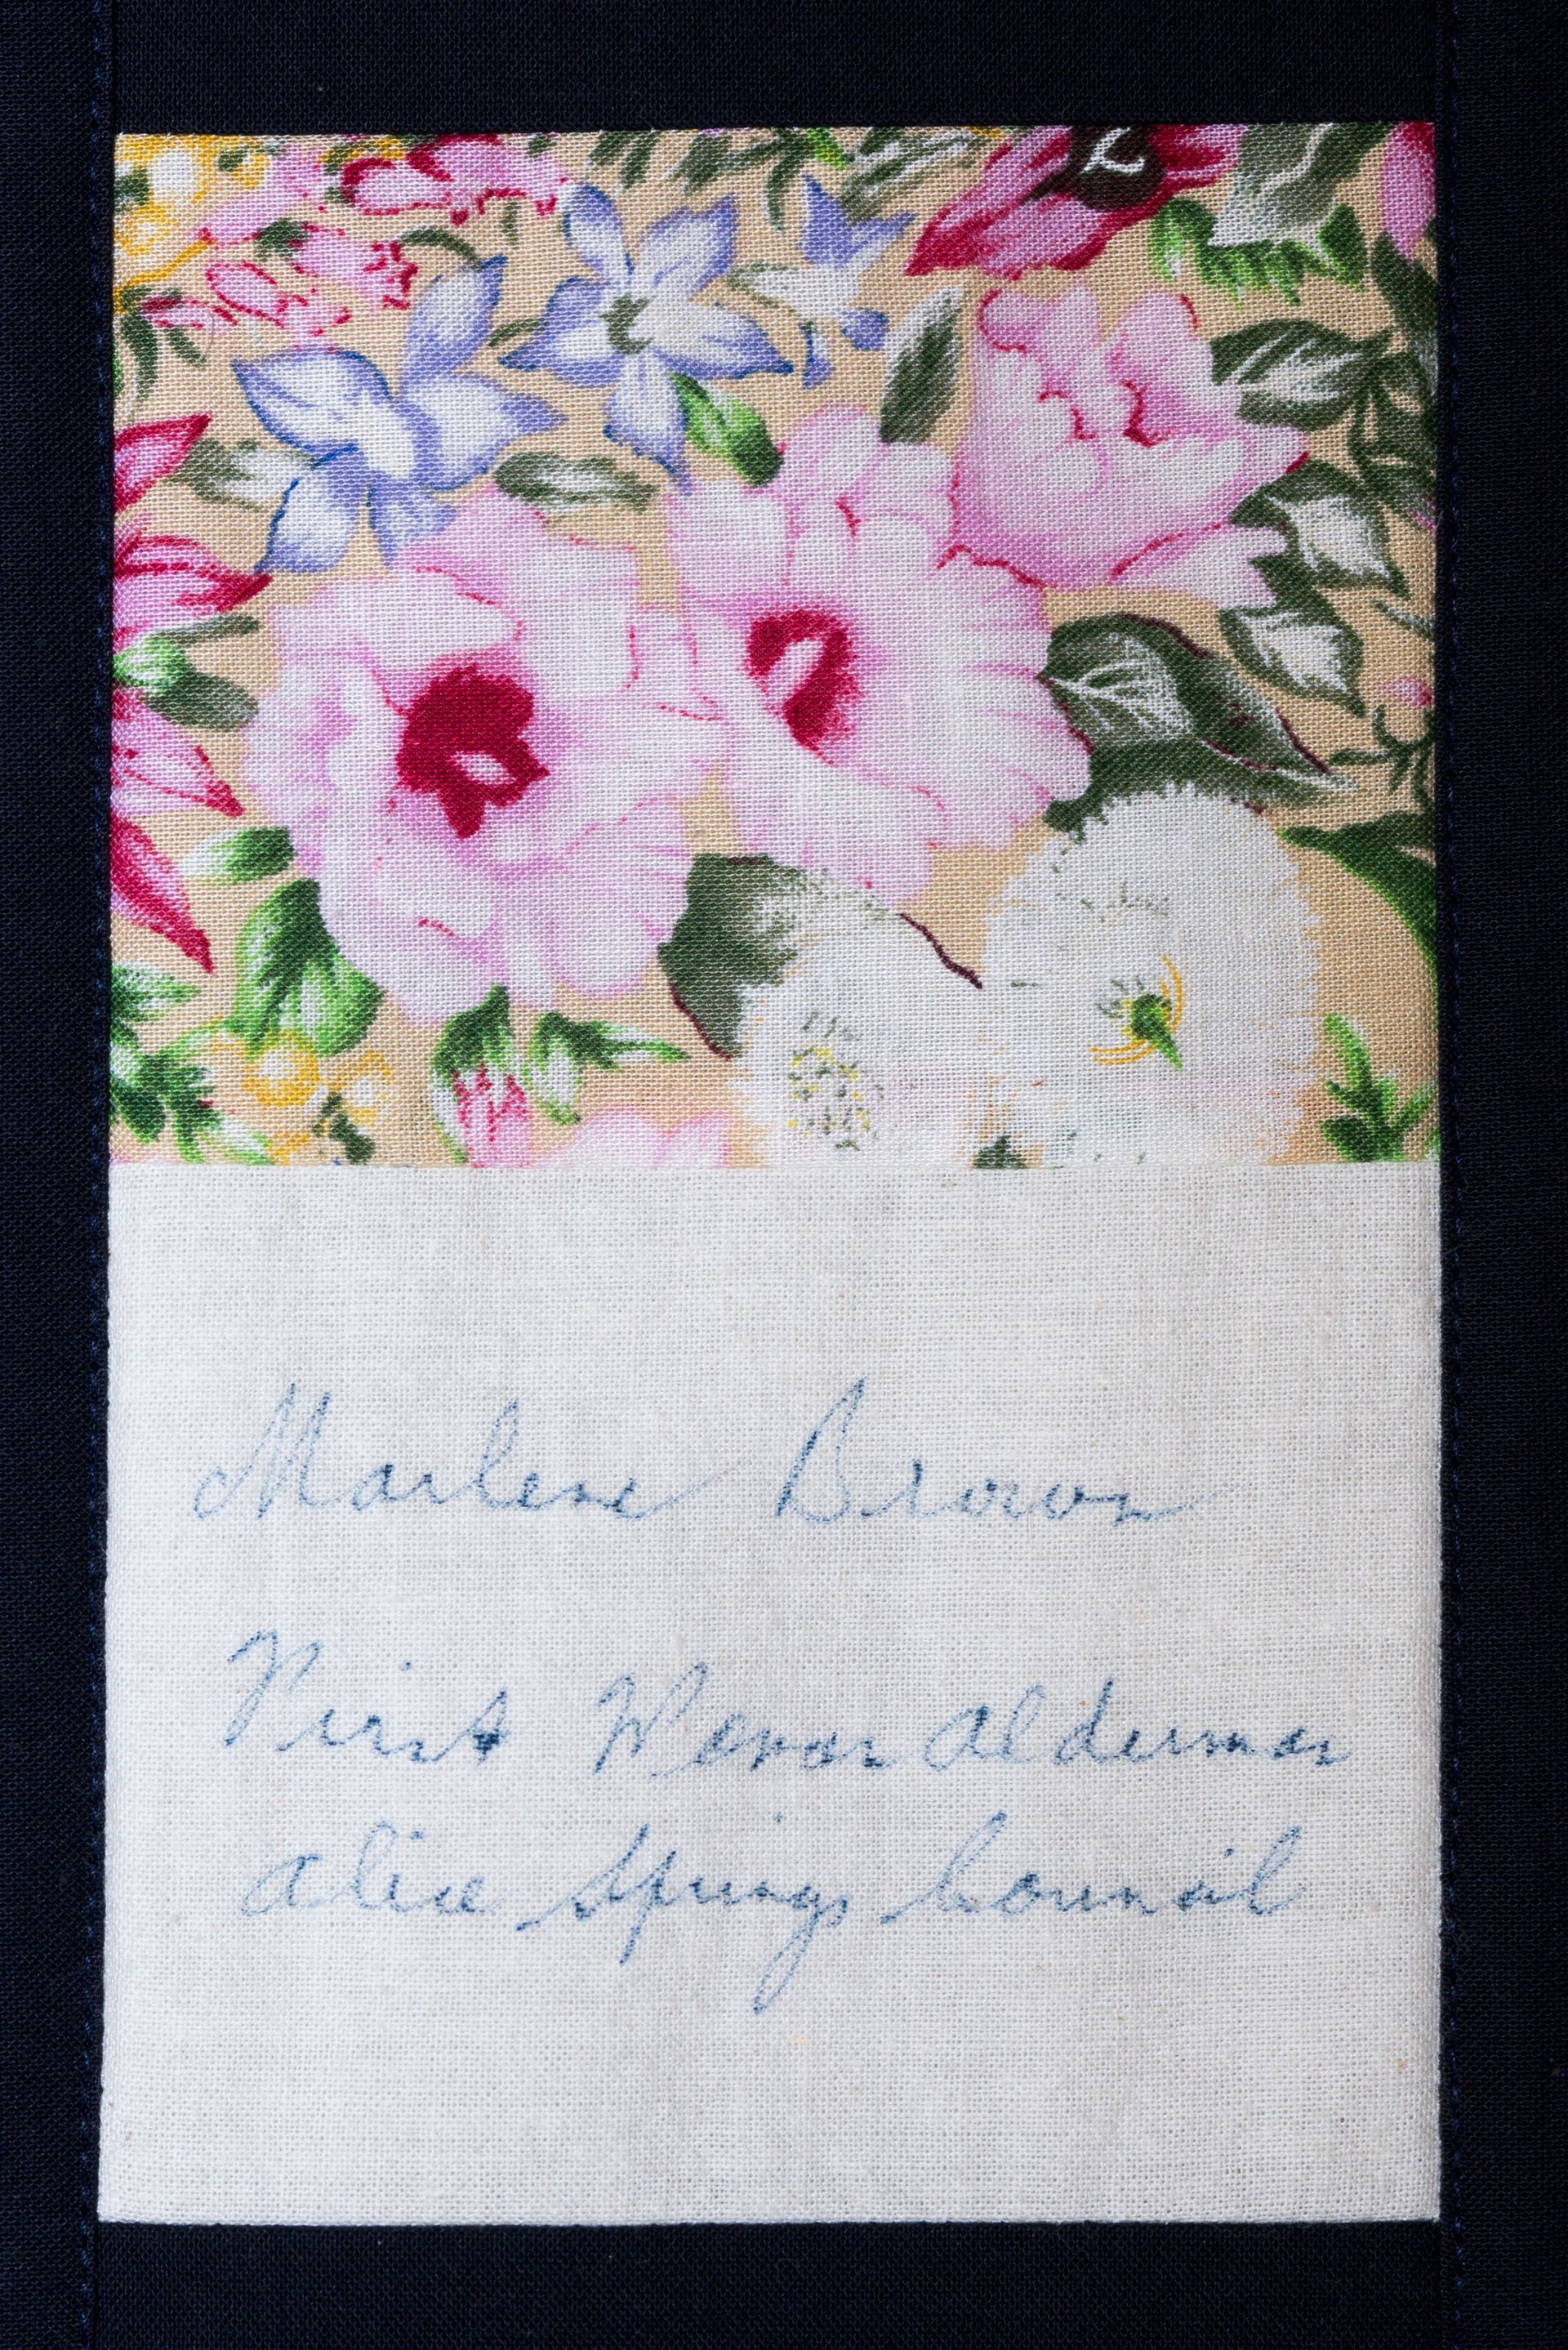 Marlene Brown
First Woman Alderman
Alice Springs Council